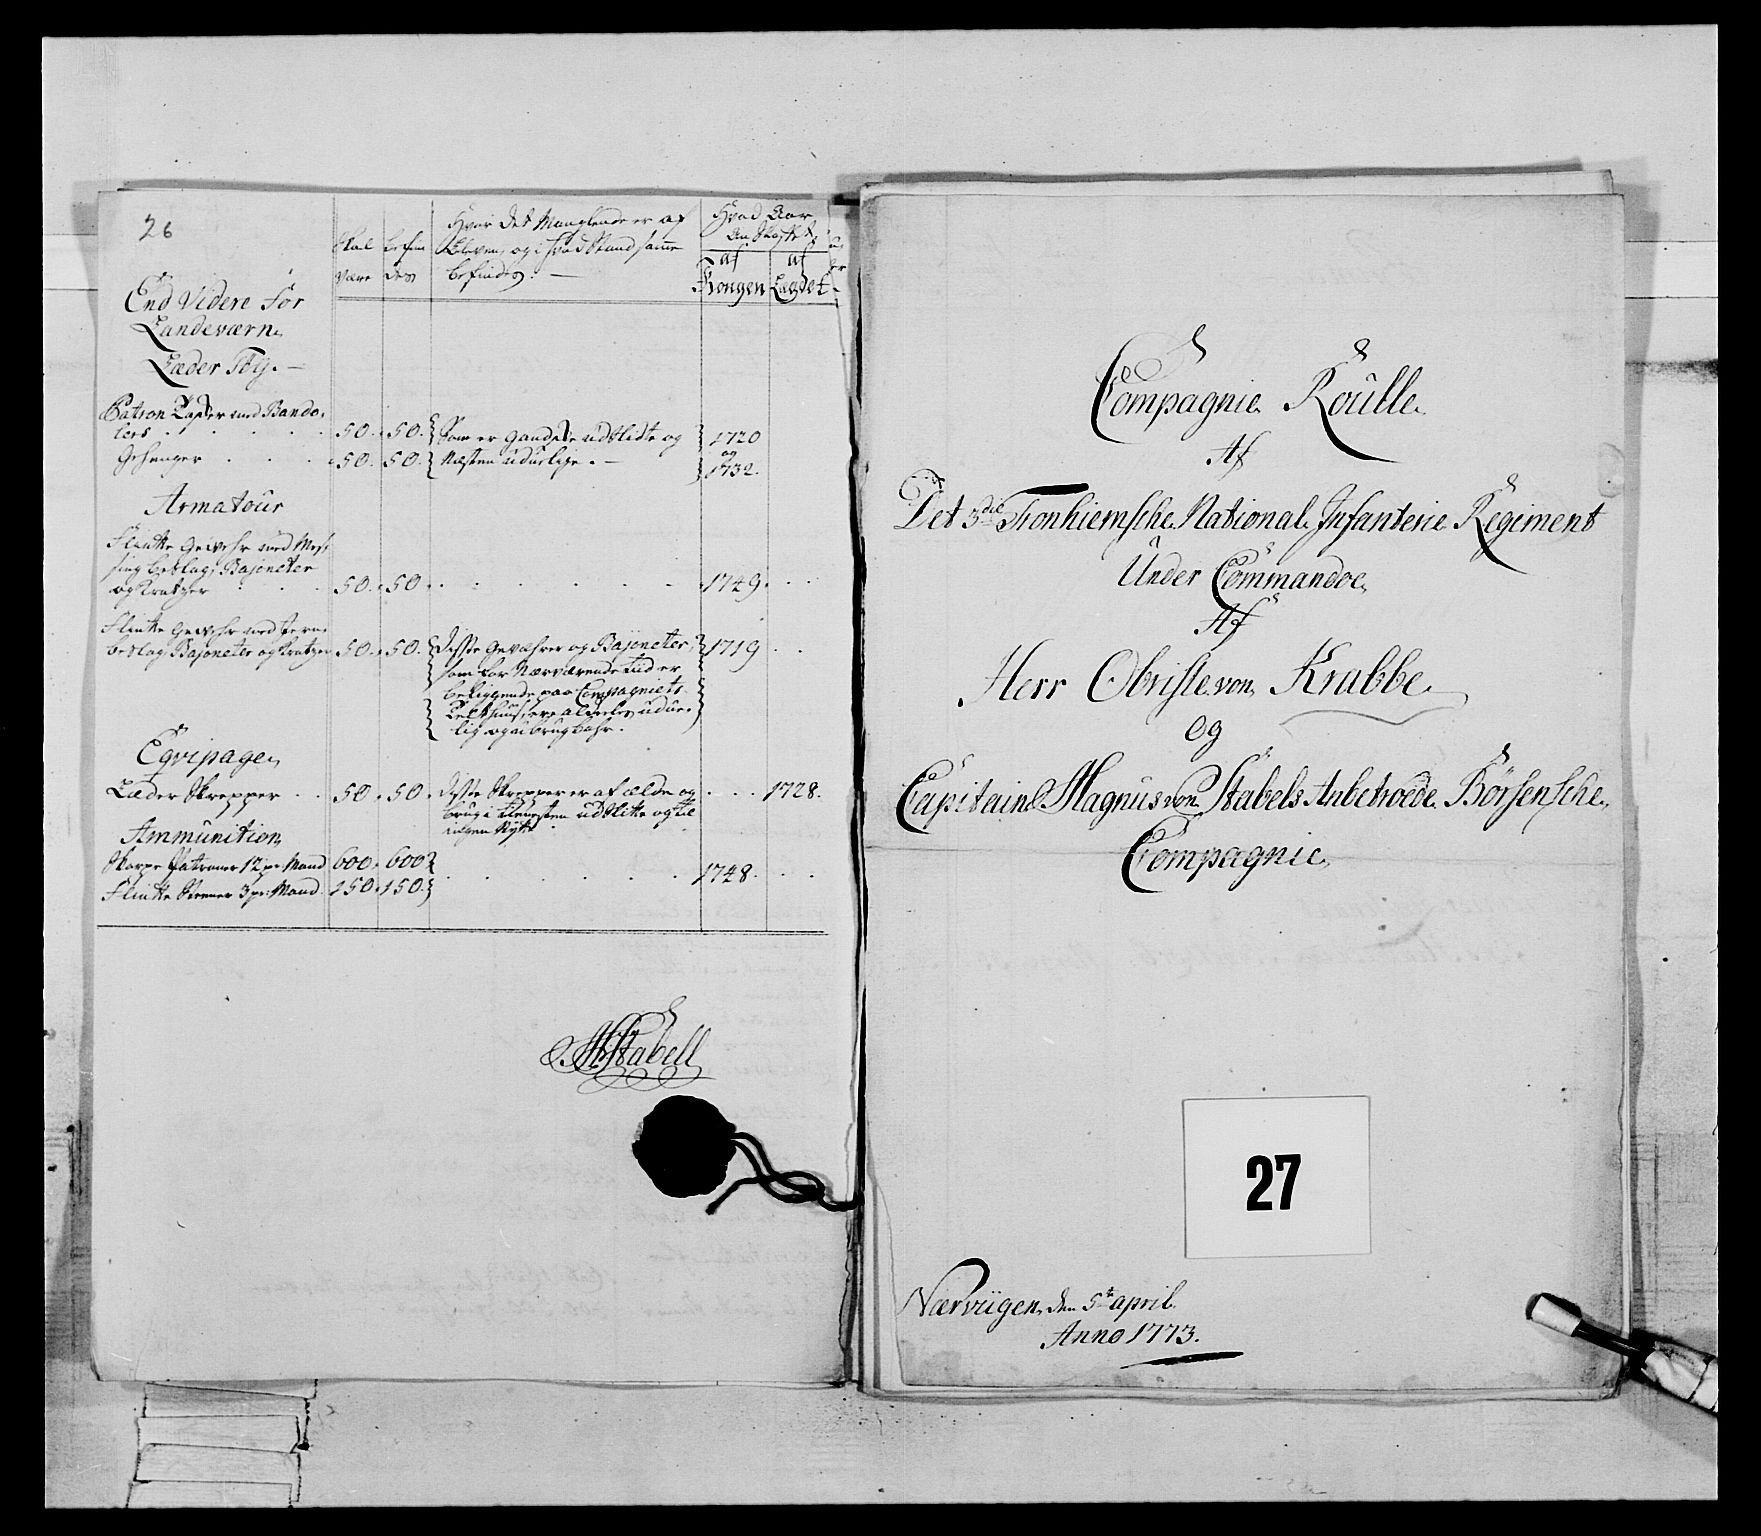 26
Skal være
Befindes
Hvor det Manglende er af
Bleven, og i hvad Stand samme
befindes. —
Hvad Aar
Anskaffet
af Kongen
af Lægdet
End Videre For
Landeværn
Læder Töy. —
Patron Tasker med Bando-
lers . . . 50. 50. Som er Gandske udslidte og 1720
og
Gehenger . . . 50. 50. Næsten uduelige. — 1732.
Armatour
Flinte Gewehr med Mes-
sing beslag, Bajoneter
og Kratzer . . . 50. 50. . . . 1749. . .
Flinte Gewehr med Jern-
beslag Bajoneter og Kratzer 50. 50. Disse Gevæhrer og Bajoneter, 1719 . .
som for Nærværende tiid er
beliggende paa Compagniets
Telthuus, ere aldeles udue-
lig og ubrugbahr.
Eqvipage
Læder Skrepper . . 50. 50. Disse Skrepper er af ælde og . . . 1728.
brug i Tienesten udslitte og til
ingen Nytte
Ammunition
Skarpe Patroner 12 pr Mand 600. 600
Flinte Steener 3 pr: Mand 150. 150. . . . 1748. . .
Stabell
Compagnie Roulle
Af
Det 3die Tronhiemsche National Infanterie Regiment
Under Commandoe
Af
Herr Obriste von Krabbe
Og
Capitaine Magnus von Stabels Anbetroede Börsensche
Compagnie
27
Nærviigen den 5te april
Anno 1773.